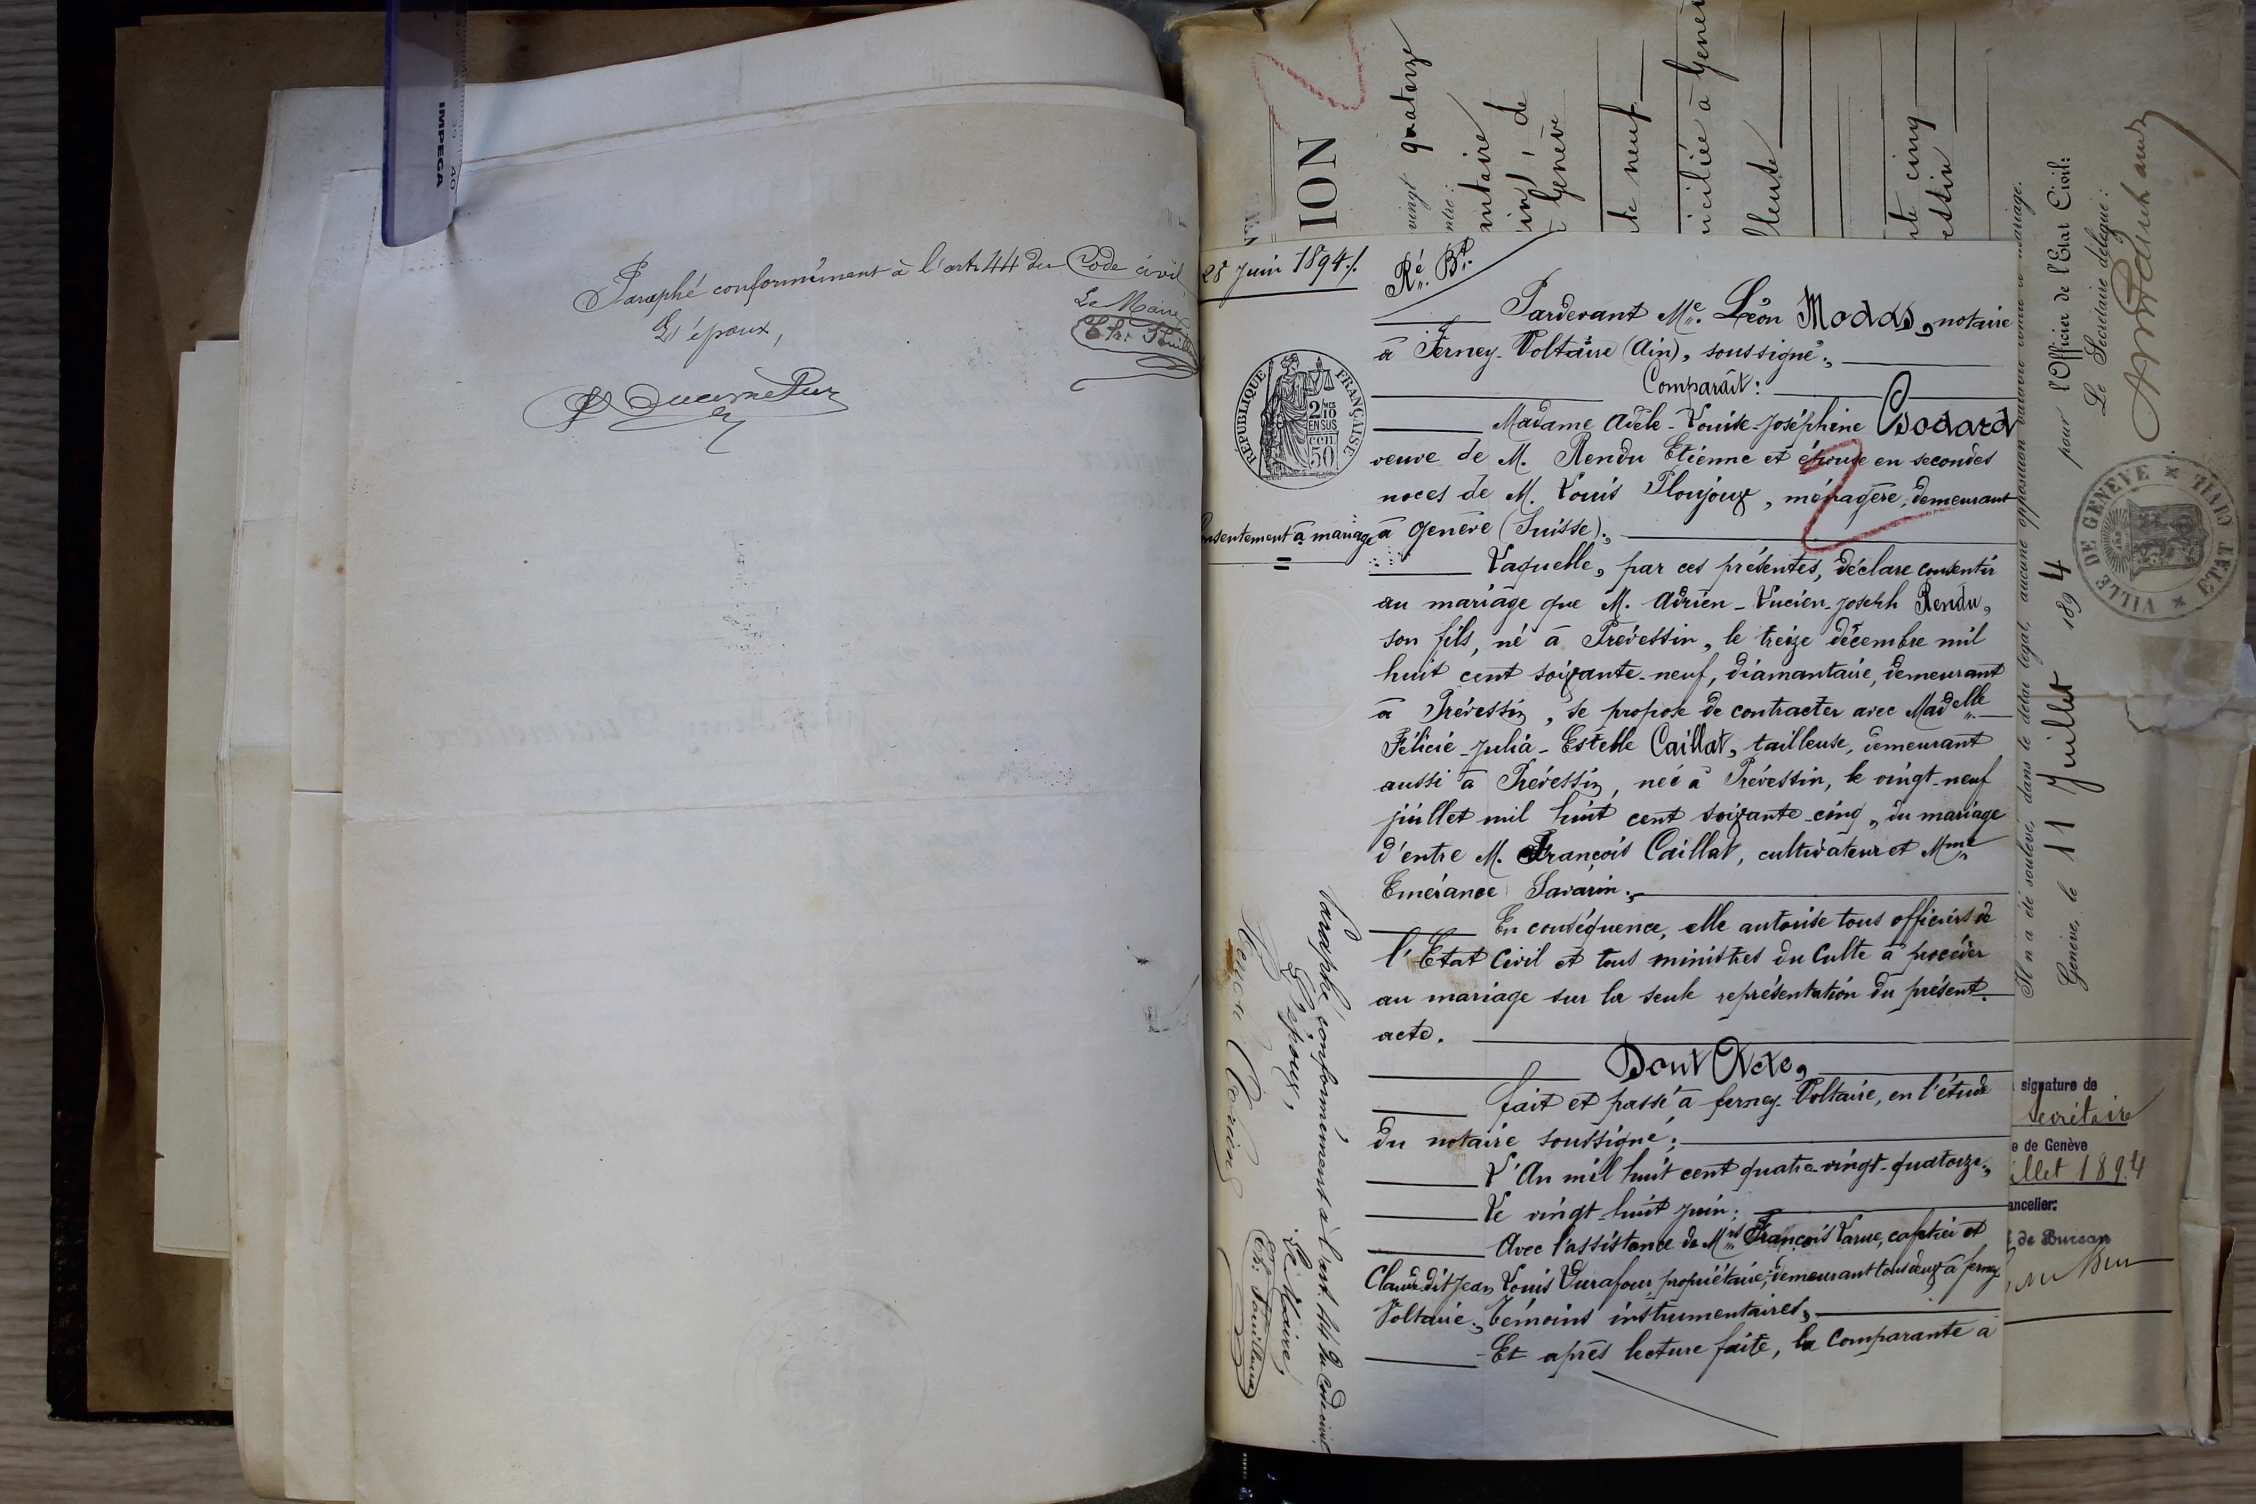 IMPEGA
40
Paraphé conformément à l'art 44 du Code civil
Le Maire
L'époux,
28 juin 1894./.
Ré. Bt.
Pardevant Me. Léon Modas, notaire
à Ferney-Voltaire (Ain), soussigné,
Comparaît:
Madame Adèle-Louise-Joséphine Godard
veuve de M. Rendu Etienne et épouse en secondes
noces de M. Louis Ploujoux, ménagère, demeurant
à Genève (Suisse).
RÉPUBLIQUE FRANÇAISE
2/10 EN SUS
50 CEN
Consentement à mariage
Laquelle, par ces présentes, déclare consentir
au mariage que M. Adrien-Lucien-Joseph Rendu,
son fils, né à Prévessin, le treize décembre mil
huit cent soixante-neuf, diamantaire, demeurant
à Prévessin, se propose de contracter avec Madelle
Félicie-Julia-Estelle Caillat, tailleuse, demeurant
aussi à Prévessin, née à Prévessin, le vingt-neuf
juillet mil huit cent soixante-cinq, du mariage
d'entre M. François Caillat, cultivateur et Mme
Emérance Savarin.
En conséquence, elle autorise tous officiers de
l'Etat civil et tous ministres du Culte à procéder
au mariage sur la seule représentation du présent
acte.
Dont Acte,
fait et passé à ferney-Voltaire, en l'étude
du notaire soussigné;
L'An mil huit cent quatre-vingt-quatorze,
Le vingt-huit juin;
Avec l'assistance de Mrs François Larue, cafetier et
Claude dit Jean Louis Durafour, propriétaire, demeurant tous deux à ferney
Voltaire, témoins instrumentaires,
Et après lecture faite, la comparante a
Paraphé conformément à l'art. 44 du Code civil
L'époux,
Le Maire,
ION
vingt quatorze
ntaire
in, de
Genève
te neuf
iciliée à Genève
te cinq
essin
Il n'a été soulevé, dans le délai légal, aucune opposition
mariage.
Genève, le 11 Juillet 1894
pour l'Officier de l'Etat Civil:
Le Secrétaire délégué:
VILLE DE GENEVE
ETAT CIVIL
signature de
secrétaire
de Genève
illet 1894
ancelier:
de Bureau